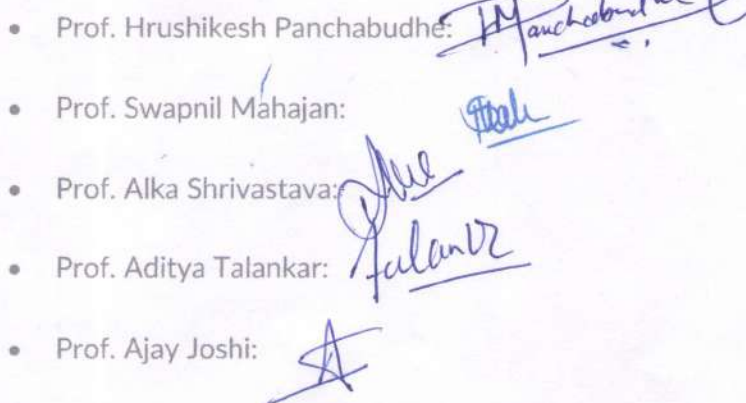 • Prof. Hrushikesh Panchabudhe:
• Prof. Swapnil Mahajan:
• Prof. Alka Shrivastava:
• Prof. Aditya Talankar:
• Prof. Ajay Joshi: